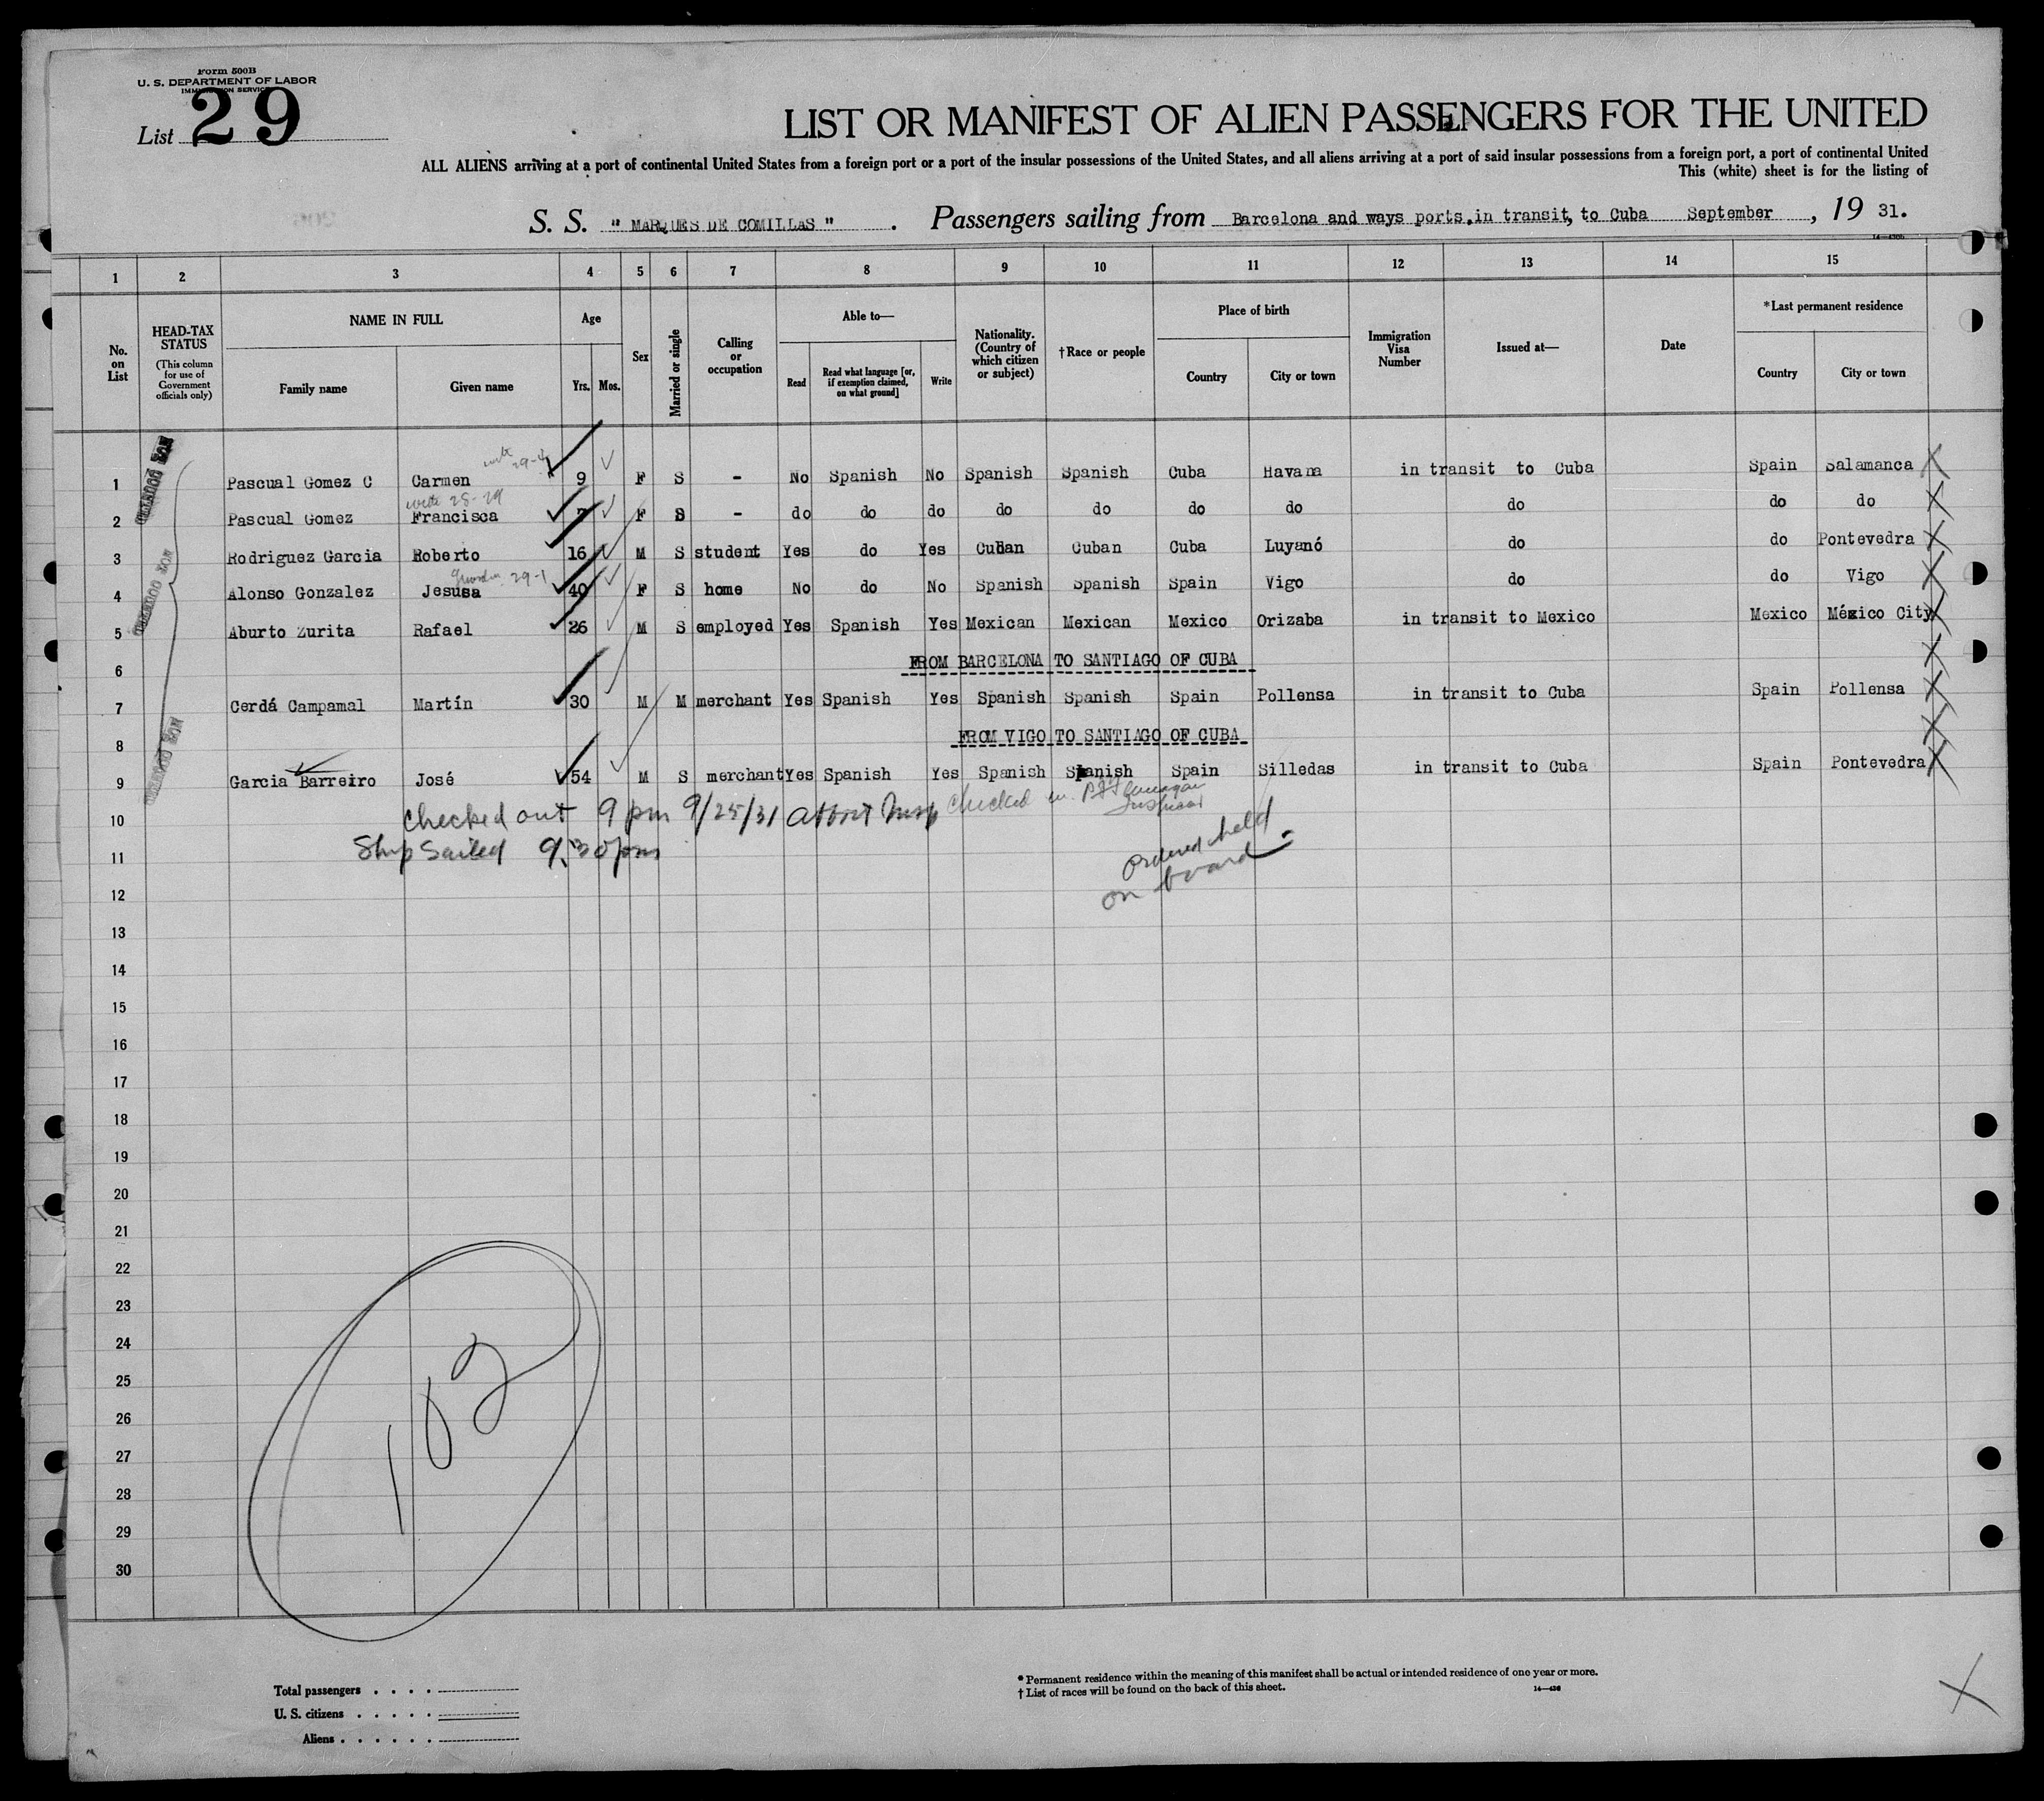 Form 500B
U. S. DEPARTMENT OF LABOR
IMMIGRATION SERVICE
List 29
LIST OR MANIFEST OF ALIEN PASSENGERS FOR THE UNITED
ALL ALIENS arriving at a port of continental United States from a foreign port or a port of the insular possessions of the United States, and all aliens arriving at a port of said insular possessions from a foreign port, a port of continental United
This (white) sheet is for the listing of
S. S. " MARQUES DE COMILLAS " . Passengers sailing from Barcelona and ways ports, in transit, to Cuba September , 19 31.
1 2 3 4 5 6 7 8 9 10 11 12 13 14 15
No. on List
HEAD-TAX STATUS
(This column for use of Government officials only)
NAME IN FULL
Family name
Given name
Age
Yrs.
Mos.
Sex
Married or single
Calling or occupation
Able to—
Read
Read what language [or, if exemption claimed, on what ground]
Write
Nationality. (Country of which citizen or subject)
†Race or people
Place of birth
Country
City or town
Immigration Visa Number
Issued at—
Date
*Last permanent residence
Country
City or town
29-4
1 Pascual Gomez C Carmen 9 F S - No Spanish No Spanish Spanish Cuba Havana in transit to Cuba Spain Salamanca
2 Pascual Gomez Francisca 7 F S - do do do do do do do do do do
3 Rodriguez Garcia Roberto 16 M S student Yes do Yes Cuban Cuban Cuba Luyanó do do Pontevedra
29-1
4 Alonso Gonzalez Jesusa 40 F S home No do No Spanish Spanish Spain Vigo do do Vigo
5 Aburto Zurita Rafael 26 M S employed Yes Spanish Yes Mexican Mexican Mexico Orizaba in transit to Mexico Mexico México City
6 FROM BARCELONA TO SANTIAGO OF CUBA
7 Cerdá Campamal Martín 30 M M merchant Yes Spanish Yes Spanish Spanish Spain Pollensa in transit to Cuba Spain Pollensa
8 FROM VIGO TO SANTIAGO OF CUBA
9 Garcia Barreiro José 54 M S merchant Yes Spanish Yes Spanish Spanish Spain Silledas in transit to Cuba Spain Pontevedra
10 checked out 9 pm 9/25/31 checked in
11 Ship Sailed 9.30 pm
ordered held
on board
12
13
14
15
16
17
18
19
20
21
22
23
24
25
26
27
28
29
30
102
Total passengers
U. S. citizens
Aliens
* Permanent residence within the meaning of this manifest shall be actual or intended residence of one year or more.
† List of races will be found on the back of this sheet.